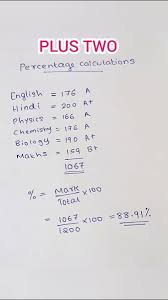 PLUS TWO
Percentage calculations
English = 176 A
Hindi = 200 A+
Physics = 166 A
Chemistry = 176 A
Biology = 190 A+
Maths = 159 B+
1067
% = Mark / Total × 100
= 1067 / 1200 × 100 = 88.91%